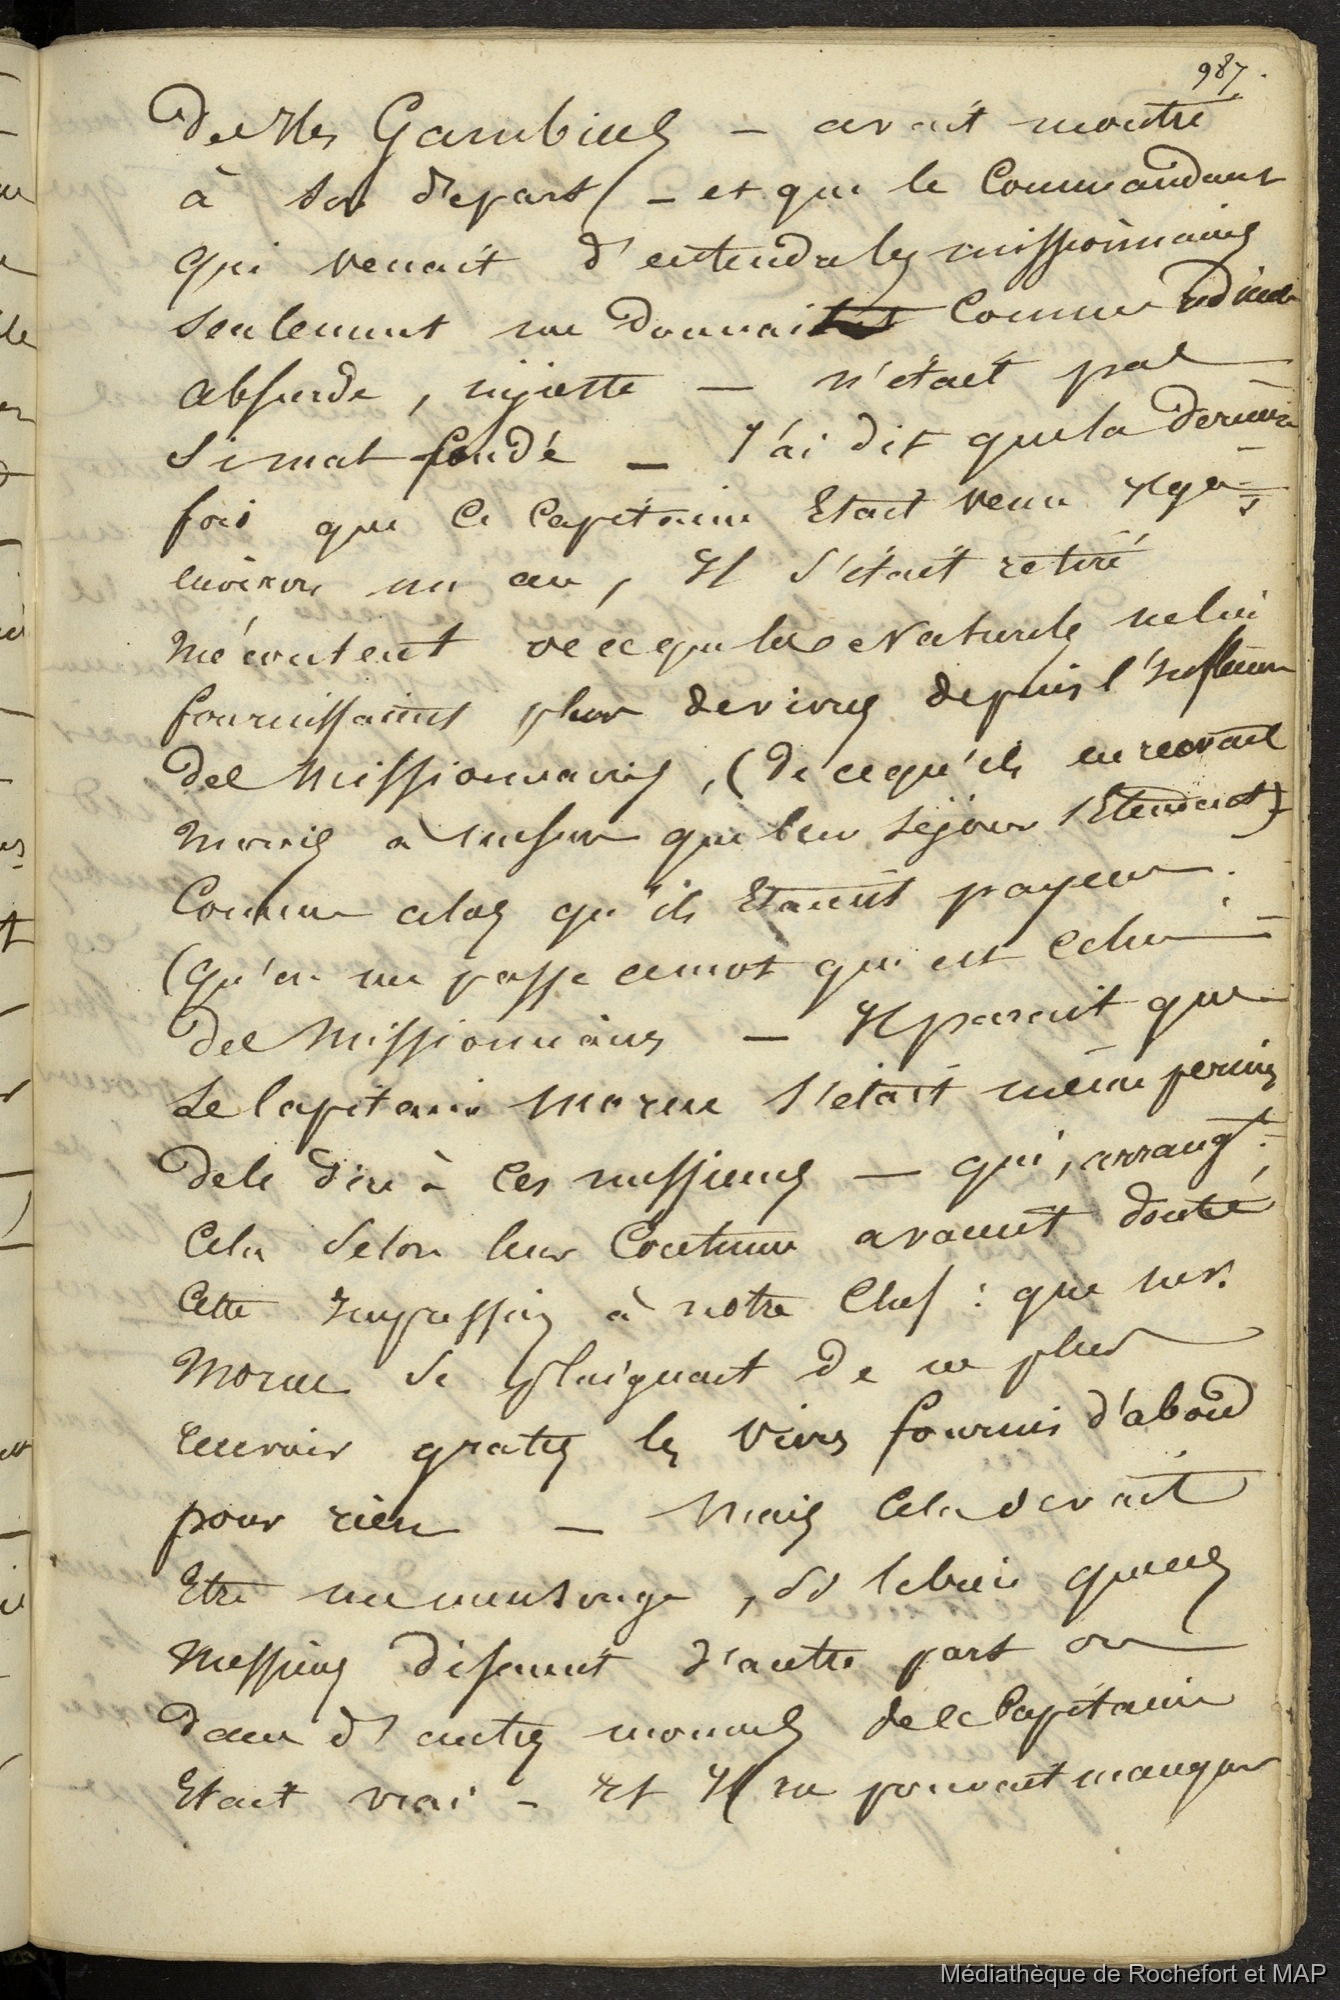 987.
des Iles Gambiers — avait montré
à son départ) — et que le Commandant
qui venait d'entendre les missionnaires
seulement me donnait comme ridicule
absurde, injuste — n'était pas
si mal fondé — J'ai dit que la dernière
fois que ce Capitaine Etait venu Il y a
environ un an, Il s'était retiré
mécontent de ce que les Naturels ne lui
fournissaient plus de vivres depuis l'Influence
des Missionnaires, (de ce qu'ils en recevait
moins à mesure que leur séjour s'Etendait)
Comme alors qu'ils Etaient payens.
(qu'on me passe ce mot qui est celui
des Missionnaires — Il parait que
le Capitaine Morue s'était même permis
de le dire à ces messieurs — qui, arrangt.
Cela selon leur Coutume avaient donné
Cette Impression à notre Chef : que mr.
Morue se plaignait de ne plus
recevoir gratis les vivres fournis d'abord
pour rien — Mais Cela devait
Etre un mensonge, si le bien que ces
Messieurs disaient d'autre part ou
dans d'autres moments de ce Capitaine
Etait vrai — Et Il ne pouvait manquer
Médiathèque de Rochefort et MAP